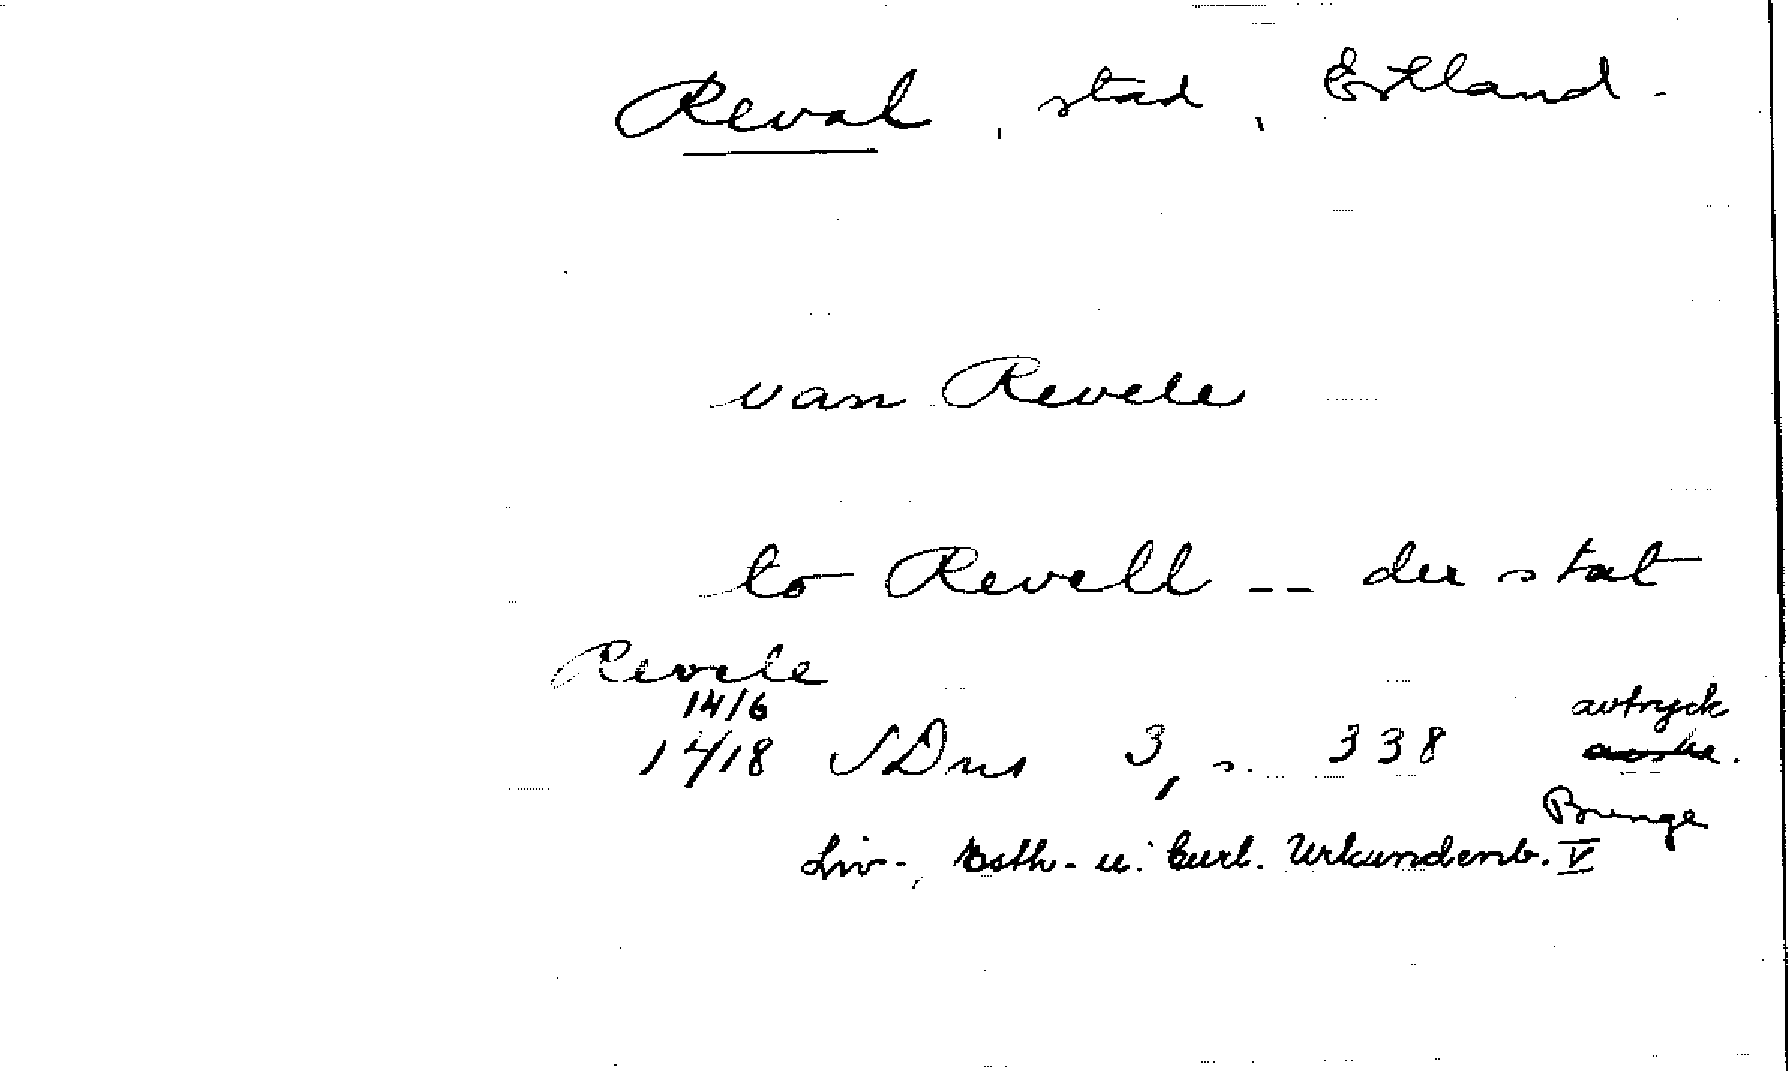 Reval, stad, Estland.
van Revele
to Revell -- der stat
Revele
14/6
1418 SDns 3, s. 338 avtryck
Bunge
Liv-, Esth- u. Curl. Urkundenb. V